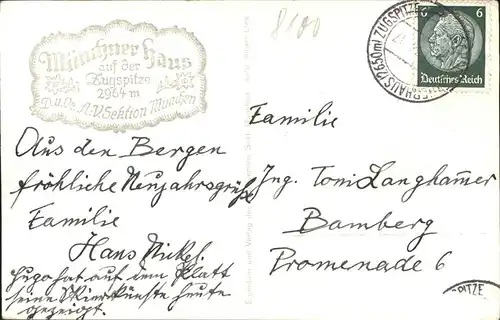 8100
Münchner Haus
auf der
Zugspitze
2964 m
D.u.Oe.A.-V. Sektion München
ZUGSPITZE
(2650m)
6 6
Deutsches Reich
Aus den Bergen
fröhliche Neujahrsgrüße
Familie
Hans Nickel.
Hugo hat auf dem Platt
seine Skierkünste heute
gezeigt.
Familie
Ing. Toni Langhamer
Bamberg
Promenade 6
PITZE